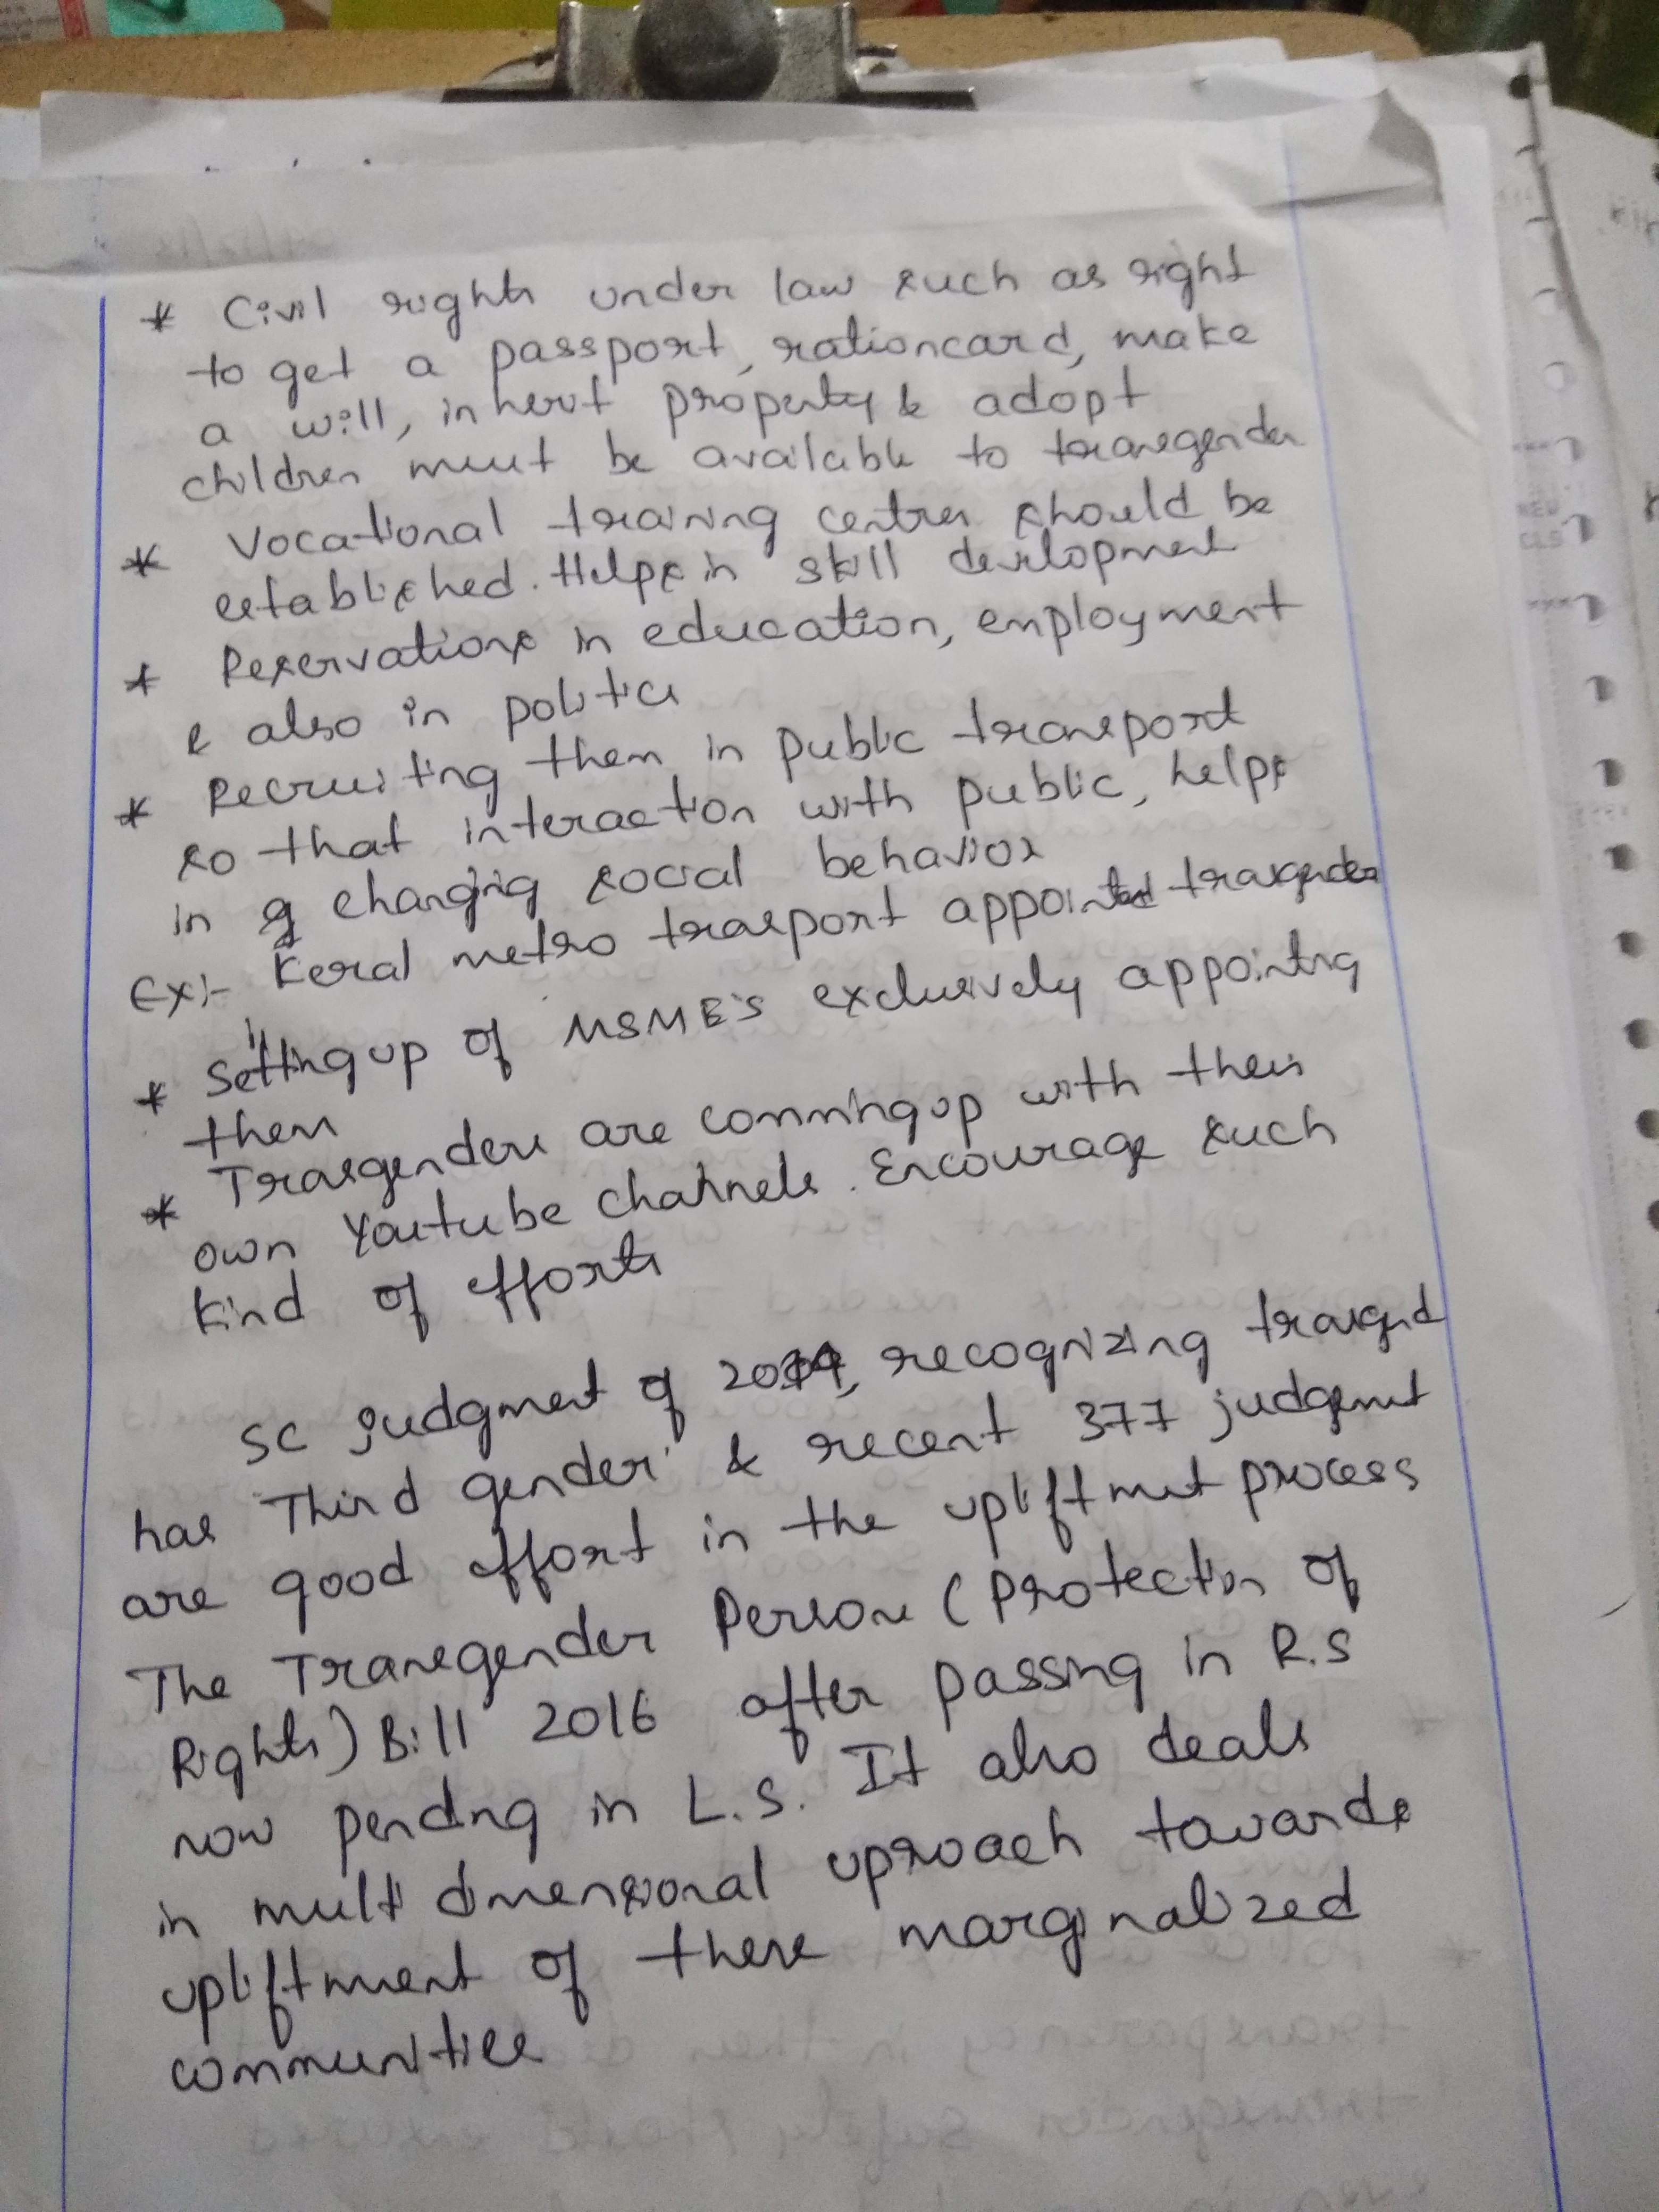 * Civil rights under law such as right
to get a passport, rationcard, make
a will, inherit property & adopt
children must be available to transgender
* Vocational training centres should be
established. Helps in skill development
* Reservations in education, employment
& also in politics
* Recruiting them in public transport
so that interaction with public, helps
in changing social behavior
Ex:- Keral metro trasport appointed trasgender
* Setting up of MSME's exclusively appointing
them
* Trasgenders are comming up with their
own Youtube channels. Encourage such
kind of efforts
SC judgment of 2014, recognizing trasgend
has Third gender & recent 377 judgement
are good effort in the upliftmet process
The Transgender Persons (Protection of
Rights) Bill 2016 after passing in R.S
now pending in L.S. It also deals
in multi dimensional uproach towards
upliftment of these marginalized
communities